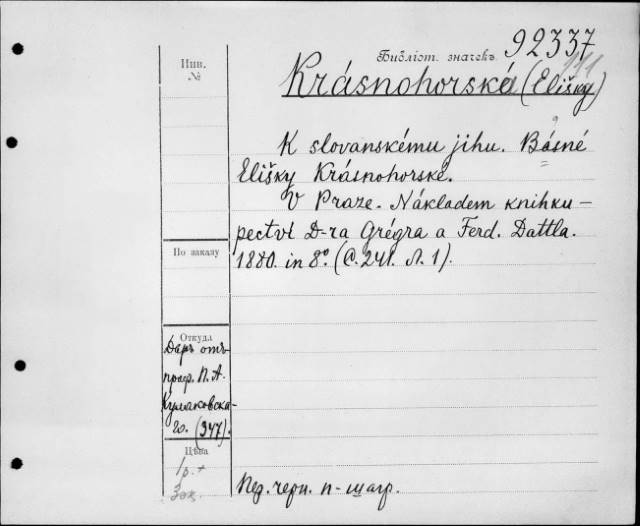 Библіот. значекъ 92337
Инв.
№
Krásnohorská (Elišky)
K slovanskému jihu. Básně
Elišky Krásnohorské.
V Praze. Nákladem knihku-
pectví D-ra Grégra a Ferd. Dattla.
1880. in 8º. (С. 241. Л. 1).
По заказу
Откуда
Даръ отъ
проф. П. А.
Кулаковска-
го. (347).
Цѣна
1р. +
Пер. черн. п-шагр.